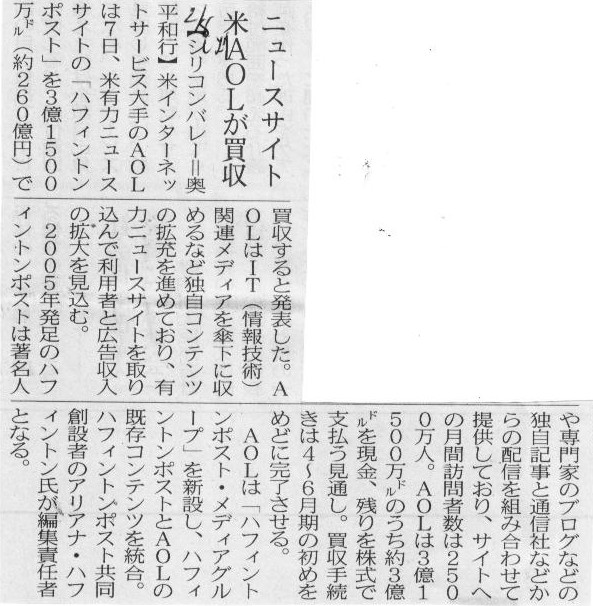 ニュースサイト
米AOLが買収
【シリコンバレー=奥
平和行】米インターネッ
トサービス大手のAOL
は7日、米有力ニュース
サイトの「ハフィントン
ポスト」を3億1500
万㌦(約260億円)で
買収すると発表した。A
OLはIT(情報技術)
関連メディアを傘下に収
めるなど独自コンテンツ
の拡充を進めており、有
力ニュースサイトを取り
込んで利用者と広告収入
の拡大を見込む。
2005年発足のハフ
ィントンポストは著名人
や専門家のブログなどの
独自記事と通信社などか
らの配信を組み合わせて
提供しており サイトへ
の月間訪問者数は250
0万人。AOLは3億1
500万㌦のうち約3億
㌦を現金、残りを株式で
支払う見通し。買収手続
きは4〜6月期の初めを
めどに完了させる。
AOLは「ハフィント
ンポスト・メディアグル
ープ」を新設し、ハフィ
ントンポストとAOLの
既存コンテンツを統合。
ハフィントンポスト共同
創設者のアリアナ・ハフ
ィントン氏が編集責任者
となる。